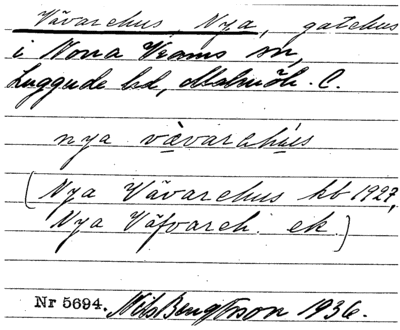 Vävarehus, Nya, gatehus
i Norra Vrams sn,
Luggude hd, Malmöh. C.
nya vàvaraháus
(Nya Vävarehus kb 1927,
Nya Väfvareh. ek.)
Nr 5694. Nils Bengtsson 1936.